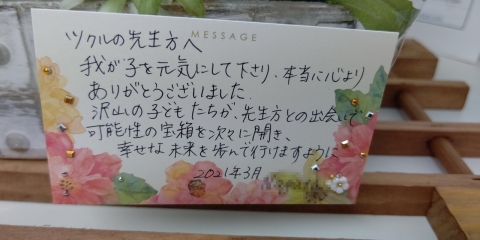 MESSAGE
ツクルの先生方へ
我が子を元気にして下さり、本当に心より
ありがとうございました。
沢山の子どもたちが、先生方との出会いで
可能性の宝箱を次々に開き、
幸せな未来を歩んで行けますように
2021年3月